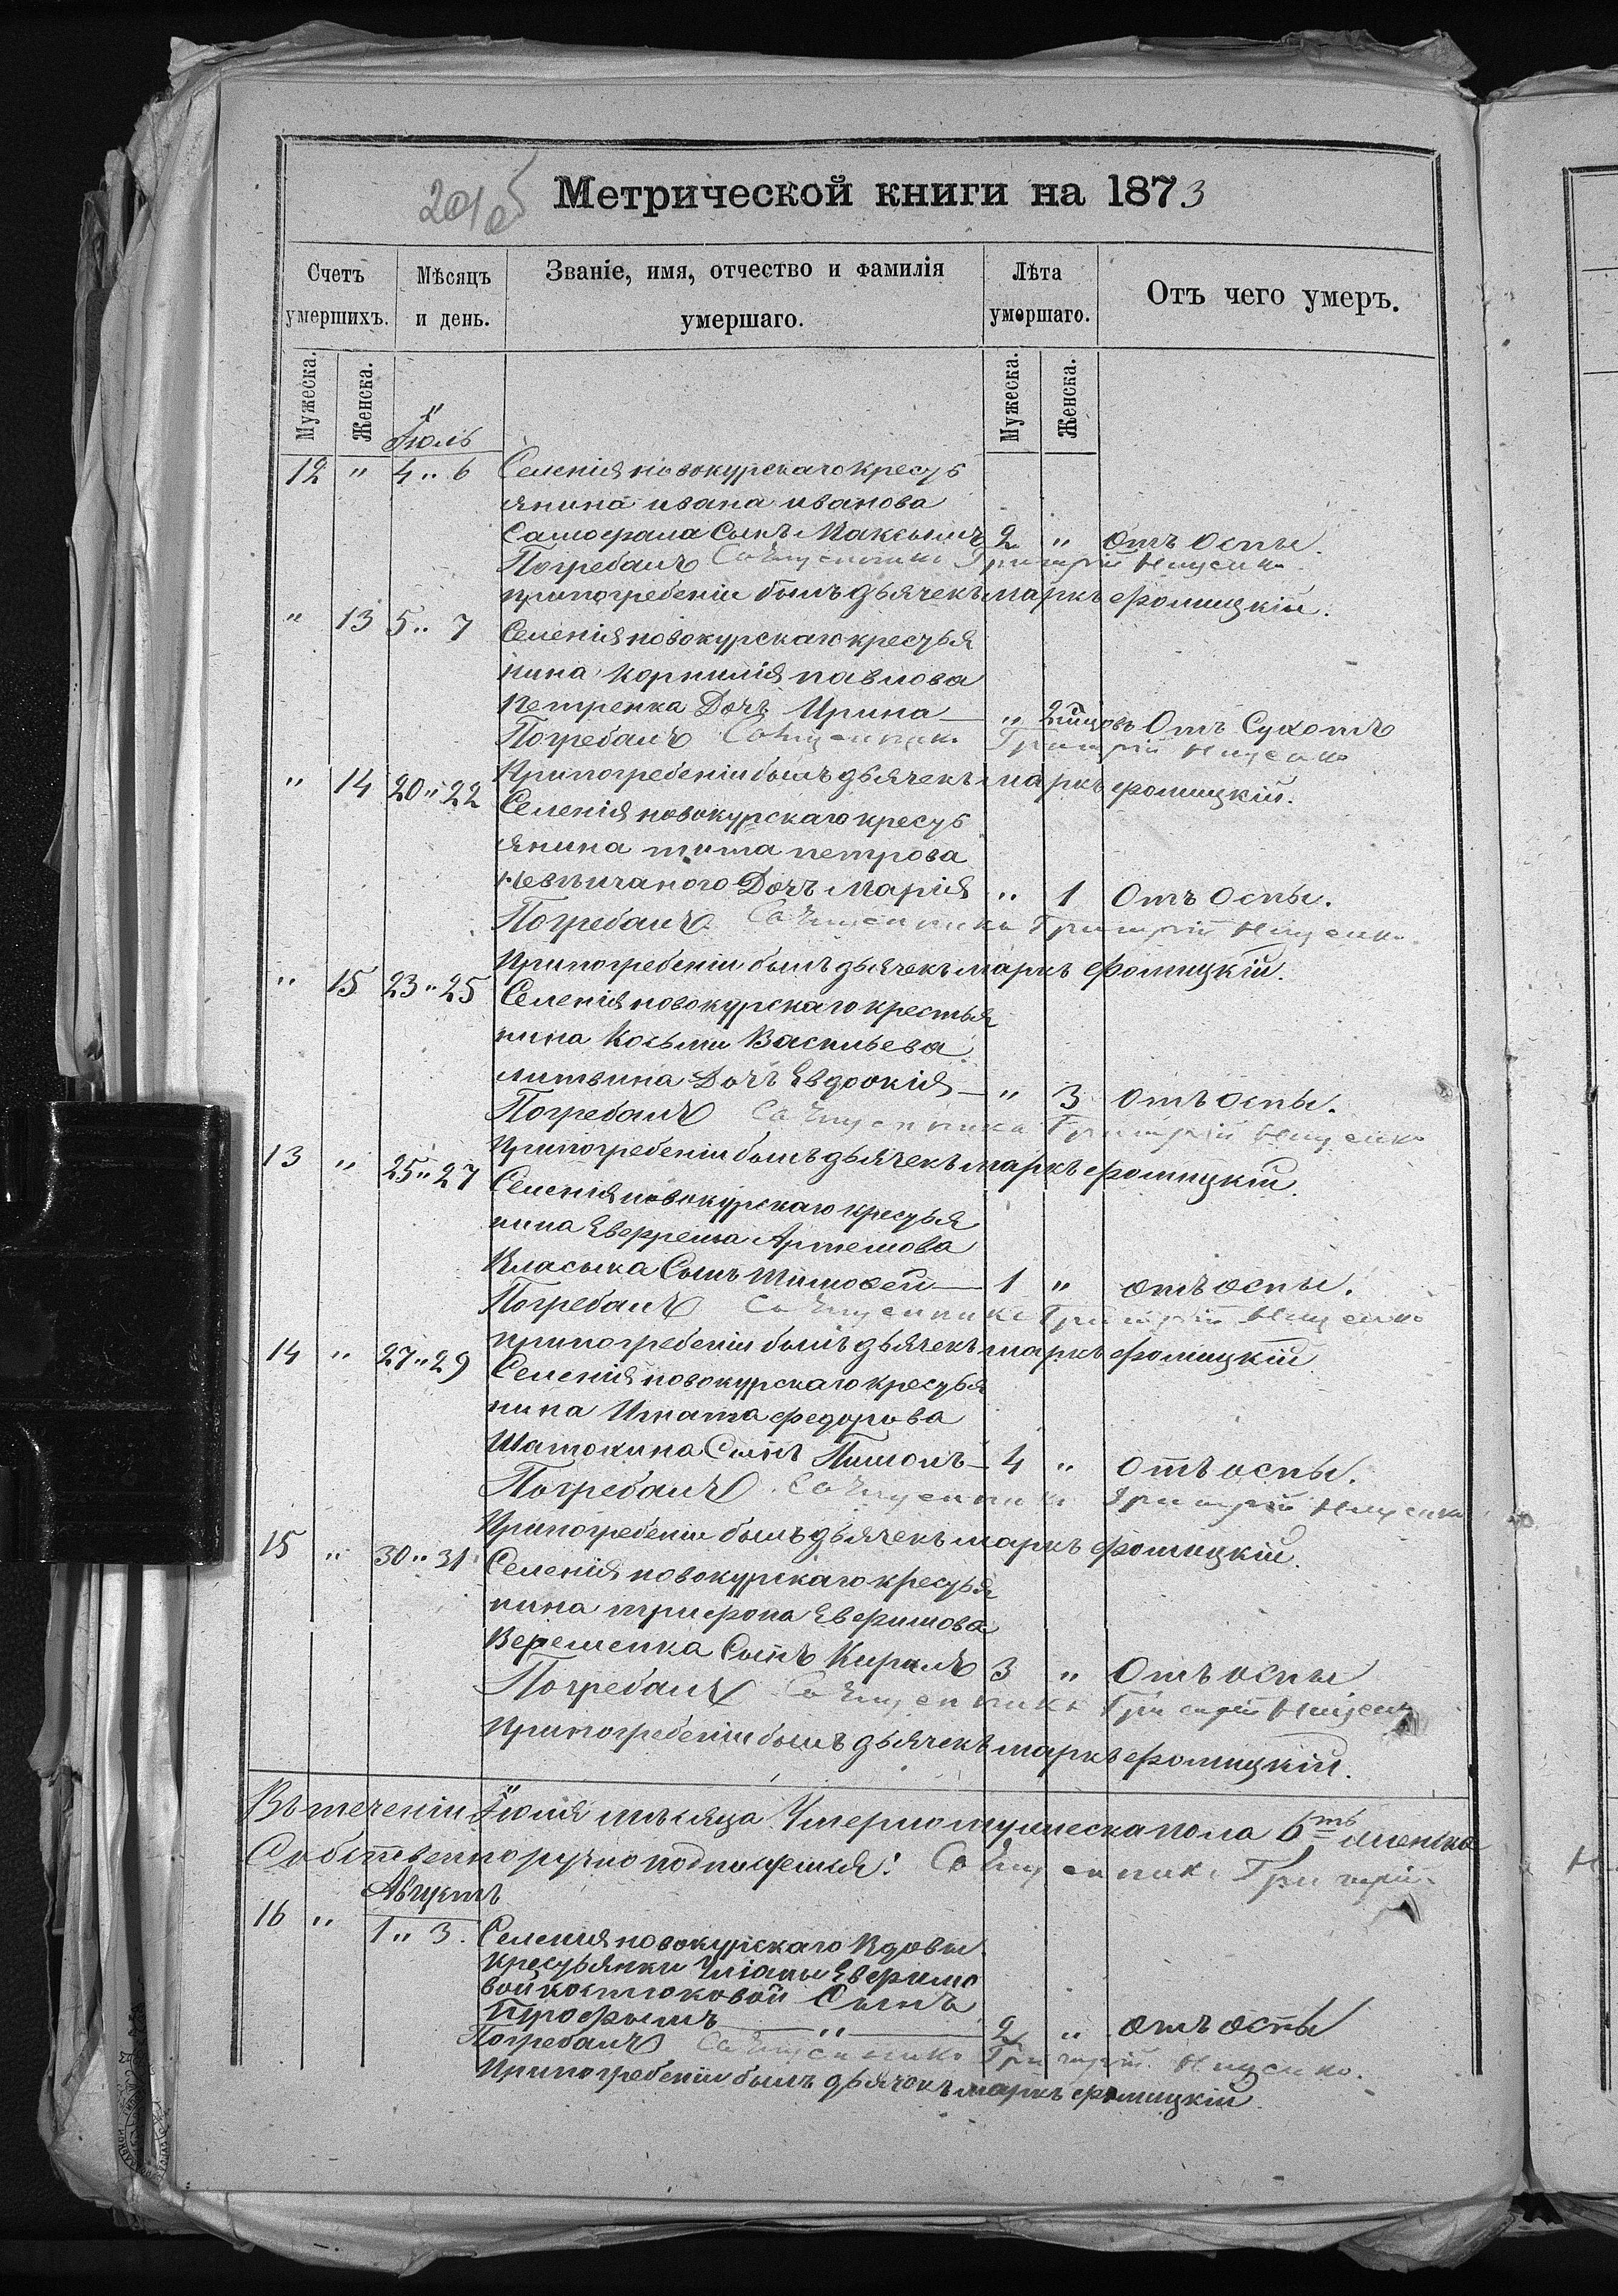 201об
Метрической книги на 1873
Счетъ умершихъ.
Мѣсяцъ и день.
Званіе, имя, отчество и фамилія умершаго.
Лѣта умершаго.
Отъ чего умеръ.
Мужеска.
Женска.
Мужеска.
Женска.
Іюль
12 " 4 " 6 Селенія новокурскаго кресть
янина ивана иванова
Сынъ 2 " отъ оспы.
Погребалъ Священникъ Григорій
при погребеніи былъ дьячекъ маркъ фомицкій.
" 13 5 " 7 Селенія новокурскаго крестья
нина Корнилія павлова
Петренка Дочь Ирина — " Отъ Сухотъ
Погребалъ Священникъ Григорій
При погребеніи былъ дьячекъ маркъ фомицкій.
" 14 20 " 22 Селенія новокурскаго кресть
янина тита петрова
Дочь Марія " 1 Отъ Оспы.
Погребалъ Священникъ Григорій
При погребеніи былъ дьячекъ маркъ фомицкій.
" 15 23 " 25 Селенія новокурскаго крестья
нина Козьми Васильева
литвина Дочь Евдокія — " 3 отъ оспы.
Погребалъ Священникъ Григорій
При погребеніи былъ дьячекъ маркъ фомицкій.
13 " 25 " 27 Селенія новокурскаго крестья
нина Артемова
Сынъ тимофей — 1 " отъ оспы.
Погребалъ Священникъ Григорій
при погребеніи былъ дьячекъ маркъ фомицкій
14 " 27 " 29 Селенія новокурскаго крестья
нина Игната федорова
Сынъ — 4 " отъ оспы.
Погребалъ Священникъ Григорій
При погребеніи былъ дьячекъ маркъ фомицкій.
15 " 30 " 31 Селенія новокурскаго крестья
нина трифона Евфимова
Сынъ Кирилъ 3 " Отъ оспы
Погребалъ Священникъ Григорій
При погребеніи былъ дьячекъ маркъ фомицкій.
Въ теченіи Іюля мѣсяца Умерло мужеска пола
Собственноручно Священникъ Григорій
Августъ
16 " 1 " 3. Селенія новокурскаго Вдовы
крестьянки Уліаны Евфимо
вой Сынъ
— " — 2 " отъ оспы
Погребалъ Священникъ Григорій
При погребеніи былъ дьячокъ маркъ фомицкій